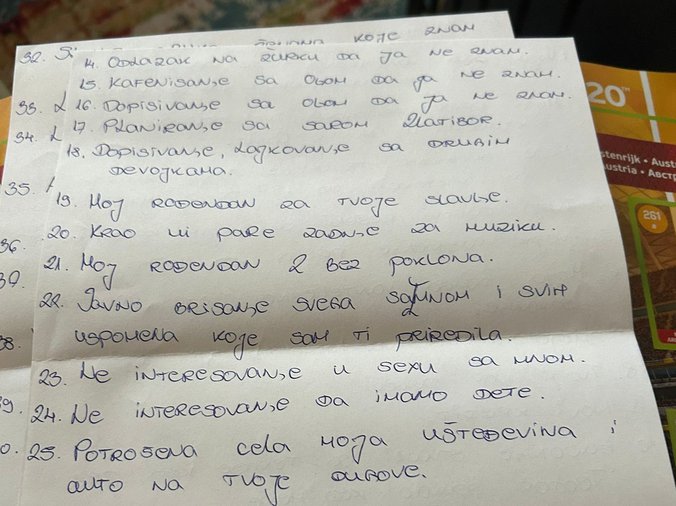 32.
KOJE ZNAM
14. ODLAZAK NA ŽURKU DA JA NE ZNAM.
15. KAFENISANJE SA OBOM DA JA NE ZNAM.
33.
16. DOPISIVANJE SA OBOM DA JA NE ZNAM.
34.
17. PLANIRANJE SA SAROM ZLATIBOR.
18. DOPISIVANJE, LAJKOVANJE SA DRUGIM
DEVOJKAMA.
35.
19. MOJ ROĐENDAN ZA TVOJE SLAVLJE.
36.
20. KRAO MI PARE ZADNJE ZA MUZIKU.
21. MOJ ROĐENDAN 2 BEZ POKLONA.
37.
22. JAVNO BRISANJE SVEGA SA MNOM I SVIH
USPOMENA KOJE SAM TI PRIREDILA.
38.
23. NE INTERESOVANJE U SEXU SA MNOM.
39.
24. NE INTERESOVANJE DA IMAMO DETE.
25. POTROŠENA CELA MOJA UŠTEĐEVINA I
AUTO NA TVOJE DUGOVE.
20
261